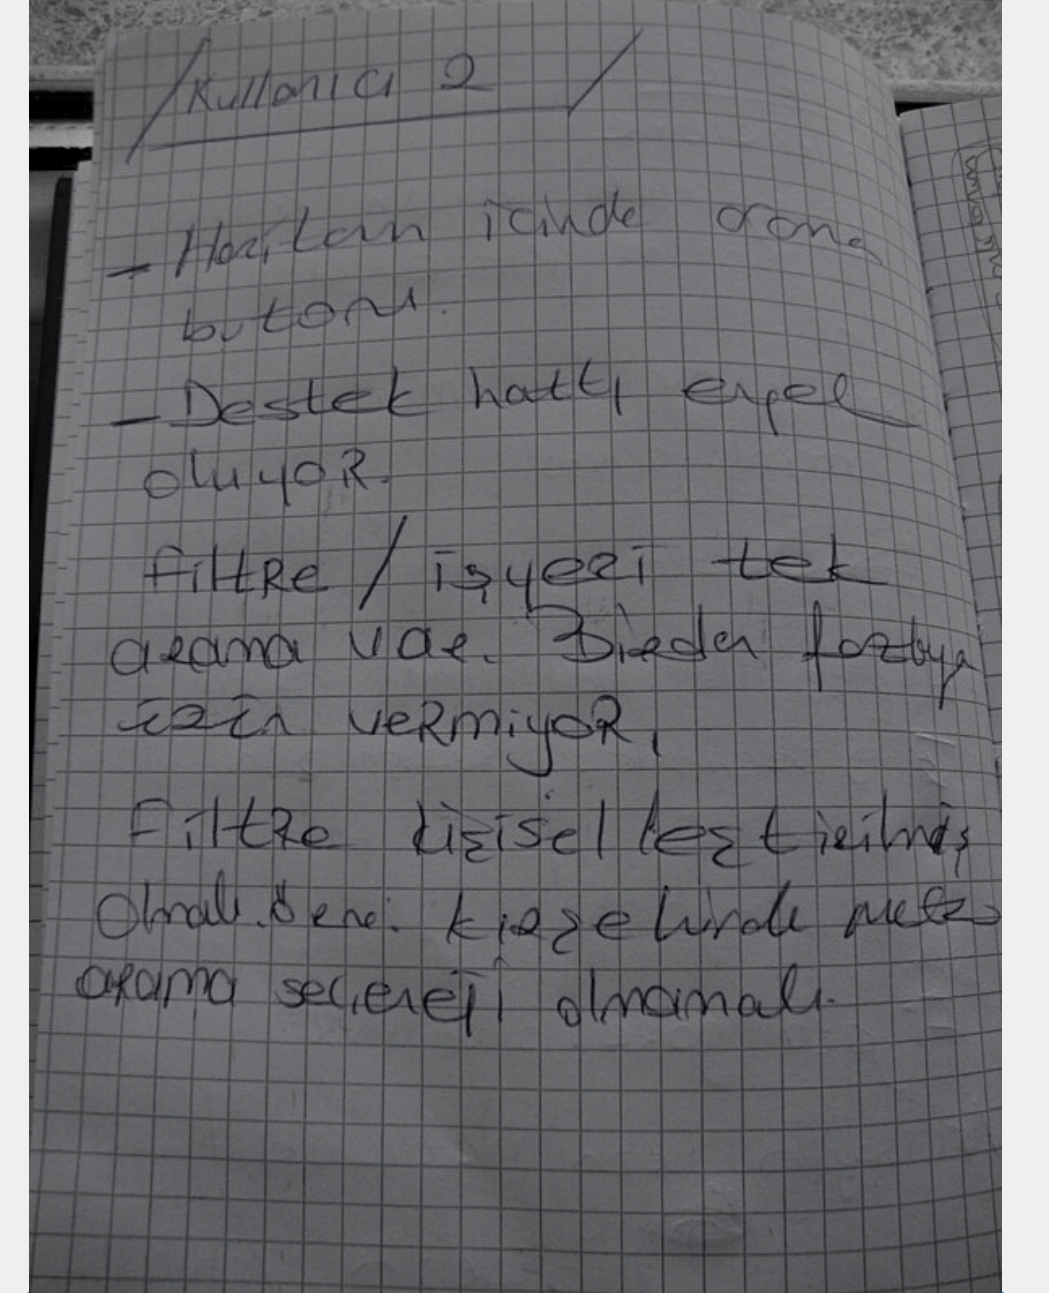 Kullanıcı 2
- Haritan içinde arama
butonu.
- Destek hattı engel
oluyor.
filtre / işyeri tek
arama var. Birden fazlaya
izin vermiyor,
Filtre kişiselleştirilmiş
olmalı. Örne. Kırşehirde metro
arama seçeneği olmamalı.